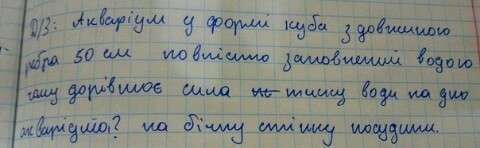 Д/З: Акваріум у формі куба з довжиною
ребра 50 см повністю заповнений водою
чому дорівнює сила тиску води на дно
акваріума? на бічну стінку посудини.